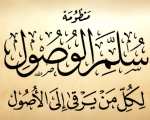 منظومة
سُلَّمِ الْوُصُول
لِكُلِّ مَنْ يَرْقَى إِلَى الْأُصُول